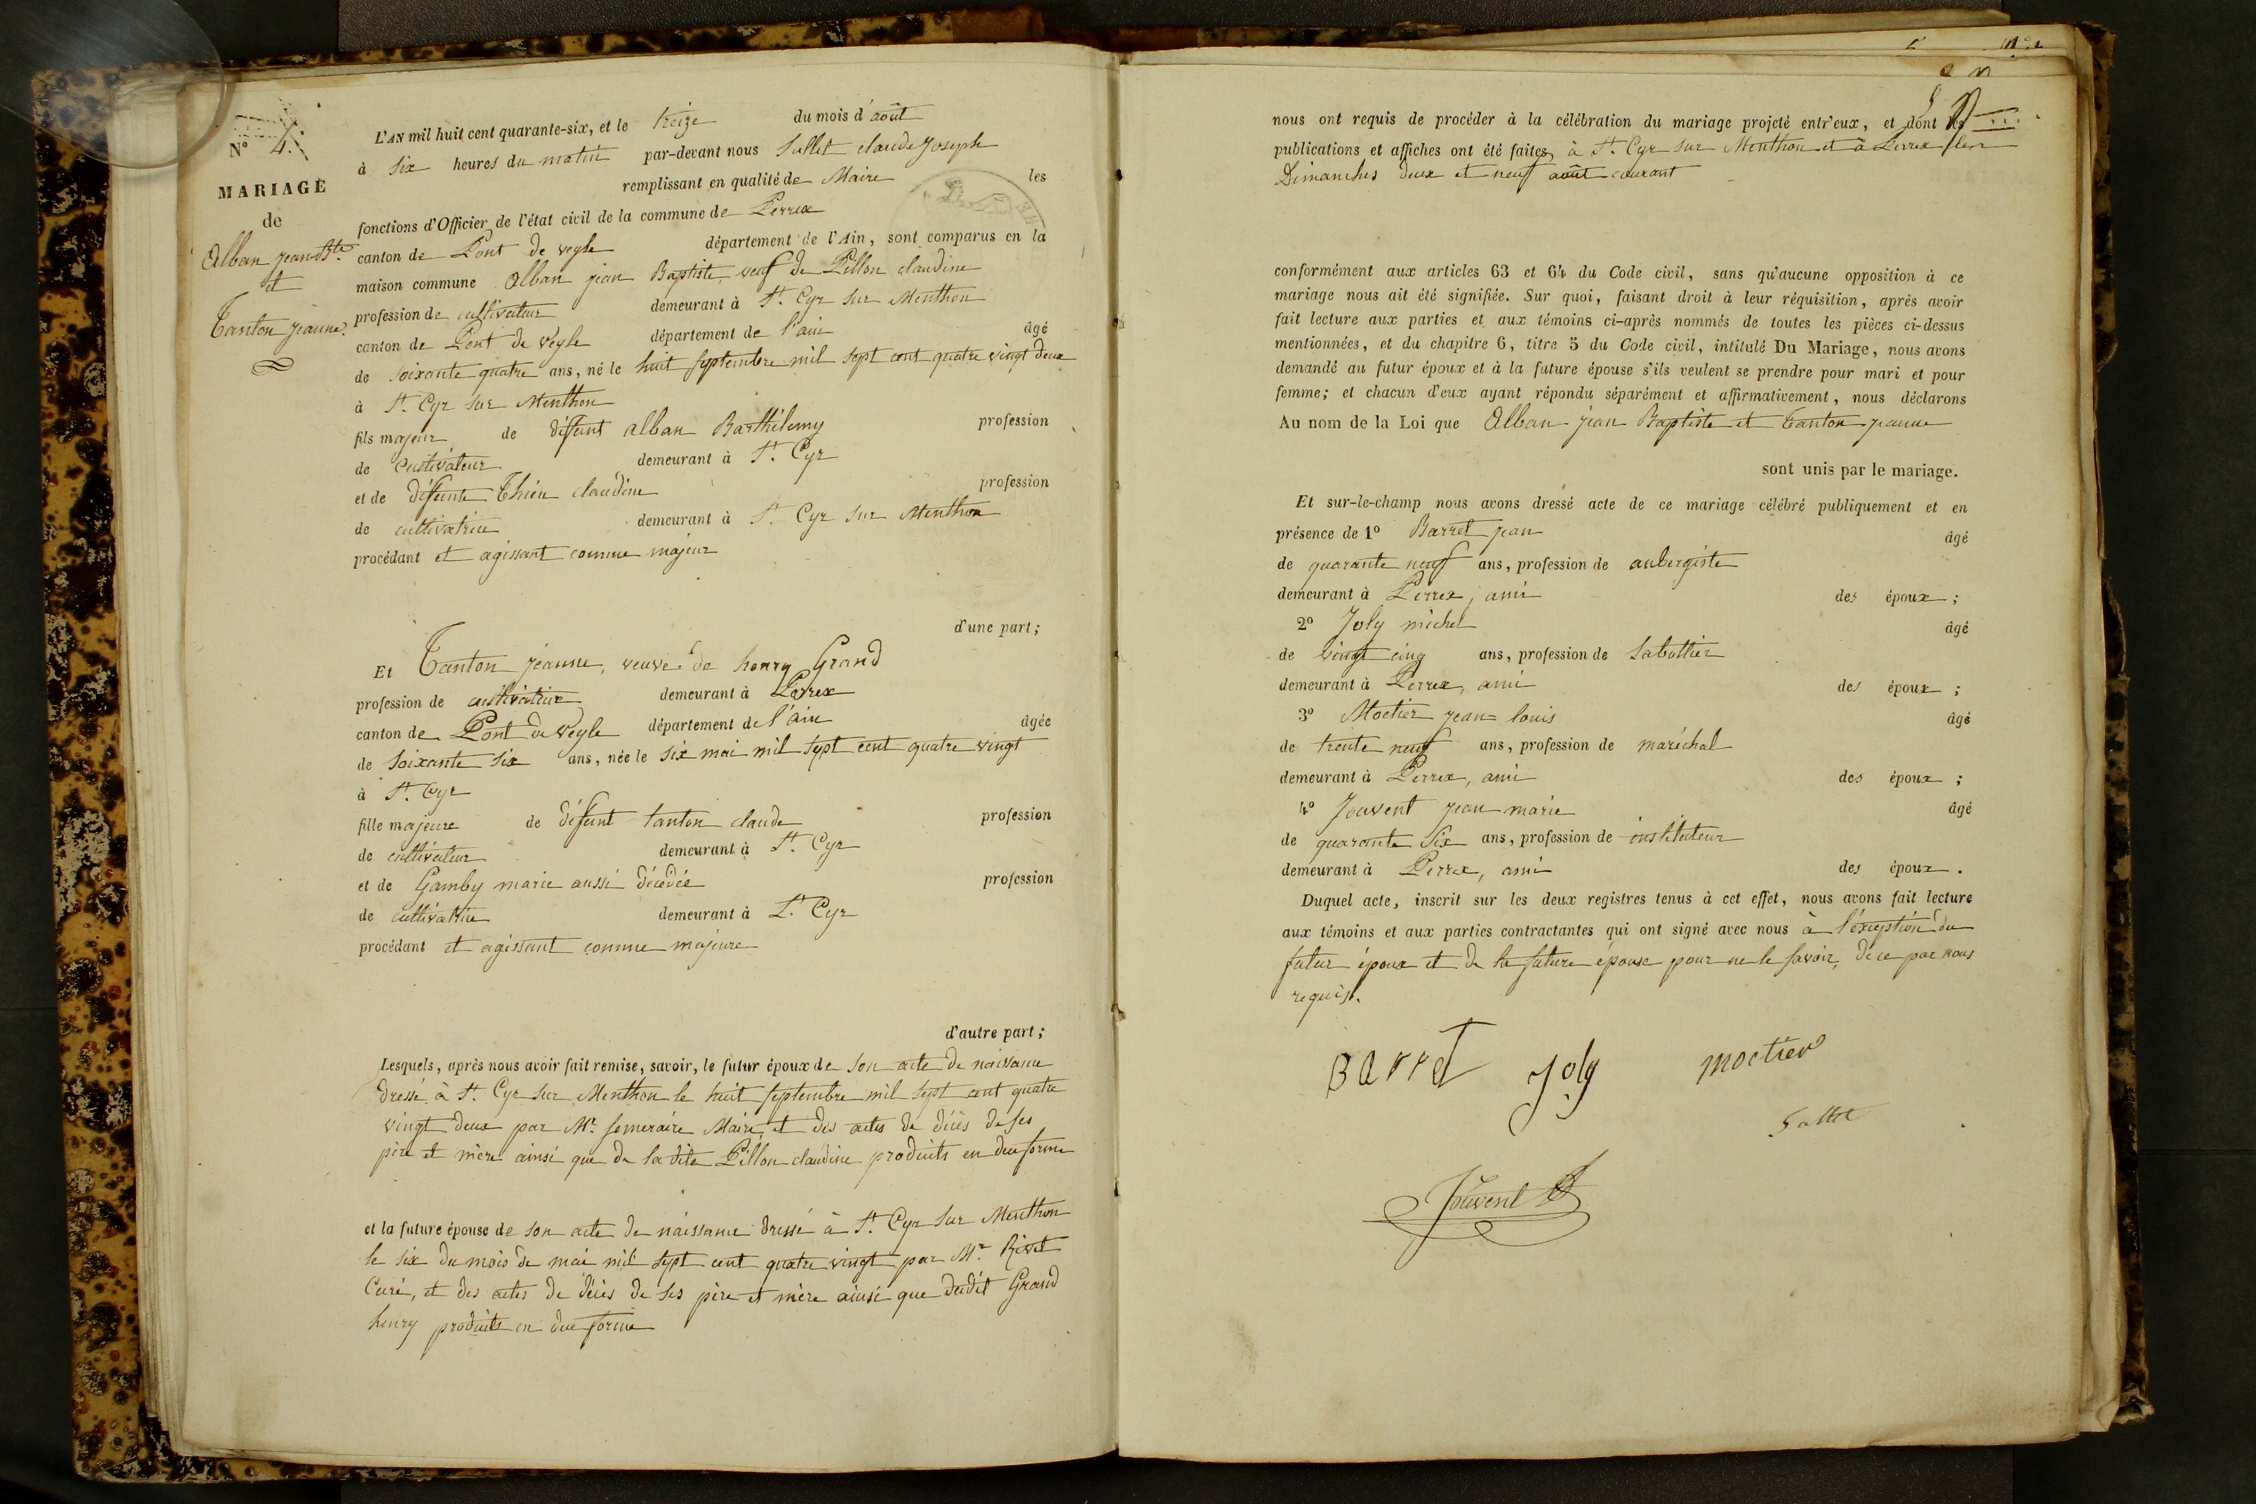 N° 4.
MARIAGE
de
Alban jean Bte.
et
Tanton jeanne.
L'AN mil huit cent quarante-six, et le treize du mois d'août
à six heures du matin par-devant nous Sallet claude Joseph
remplissant en qualité de Maire les
fonctions d'Officier de l'état civil de la commune de Perrex
canton de Pont de veyle département de l'Ain, sont comparus en la
maison commune Alban jean Baptiste, veuf de Pillon claudine
profession de cultivateur demeurant à St. Cyr sur Menthon
canton de Pont de veyle département de l'ain âgé
de soixante quatre ans, né le huit septembre mil sept cent quatre vingt deux
à St. Cyr sur Menthon
fils majeur de défunt alban Barthélemy profession
de cultivateur demeurant à St. Cyr
et de défunte Thien claudine profession
de cultivatrice demeurant à St. Cyr sur Menthon
procédant et agissant comme majeur
d'une part;
Et Tanton jeanne, veuve de henry Grand
profession de cultivatrice demeurant à Perrex
canton de Pont de Veyle département de l'ain âgée
de soixante six ans, née le six mai mil sept cent quatre vingt
à St. Cyr
fille majeure de défunt tanton claude profession
de cultivateur demeurant à St. Cyr
et de Gamby marie aussi décédée profession
de cultivatrice demeurant à St. Cyr
procédant et agissant comme majeure
d'autre part;
Lesquels, après nous avoir fait remise, savoir, le futur époux de son acte de naissance
dressé à St. Cyr sur Menthon le huit septembre mil sept cent quatre
vingt deux par Mr. Maire et des actes de décès de ses
père et mère ainsi que de la dite Pillon claudine produits en due forme
et la future épouse de son acte de naissance dressé à St. Cyr sur Menthon
le six du mois de mai mil sept cent quatre vingt par Mr. Rivet
Curé, et des actes de décès de ses père et mère ainsi que dudit Grand
henry produits en due forme
nous ont requis de procéder à la célébration du mariage projeté entr'eux, et dont les
publications et affiches ont été faites, à St. Cyr sur Menthon et à Perrex les
Dimanches deux et neuf août courant
conformément aux articles 63 et 64 du Code civil, sans qu'aucune opposition à ce
mariage nous ait été signifiée. Sur quoi, faisant droit à leur réquisition, après avoir
fait lecture aux parties et aux témoins ci-après nommés de toutes les pièces ci-dessus
mentionnées, et du chapitre 6, titre 5 du Code civil, intitulé Du Mariage, nous avons
demandé au futur époux et à la future épouse s'ils veulent se prendre pour mari et pour
femme; et chacun d'eux ayant répondu séparément et affirmativement, nous déclarons
Au nom de la Loi que Alban jean Baptiste et Tanton jeanne
sont unis par le mariage.
Et sur-le-champ nous avons dressé acte de ce mariage célébré publiquement et en
présence de 1° Barret jean âgé
de quarante neuf ans, profession de aubergiste
demeurant à Perrex, ami des époux;
2° Joly michel âgé
de vingt cinq ans, profession de sabottier
demeurant à Perrex, ami des époux;
3° Moctier jean-louis âgé
de trente neuf ans, profession de maréchal
demeurant à Perrex, ami des époux;
4° Jouvent jean marie âgé
de quarante six ans, profession de instituteur
demeurant à Perrex, ami des époux.
Duquel acte, inscrit sur les deux registres tenus à cet effet, nous avons fait lecture
aux témoins et aux parties contractantes qui ont signé avec nous à l'éxception du
futur époux et de la future épouse pour ne le savoir, de ce par nous
requis.
Barret Joly moctier
Sallet
Jouvent